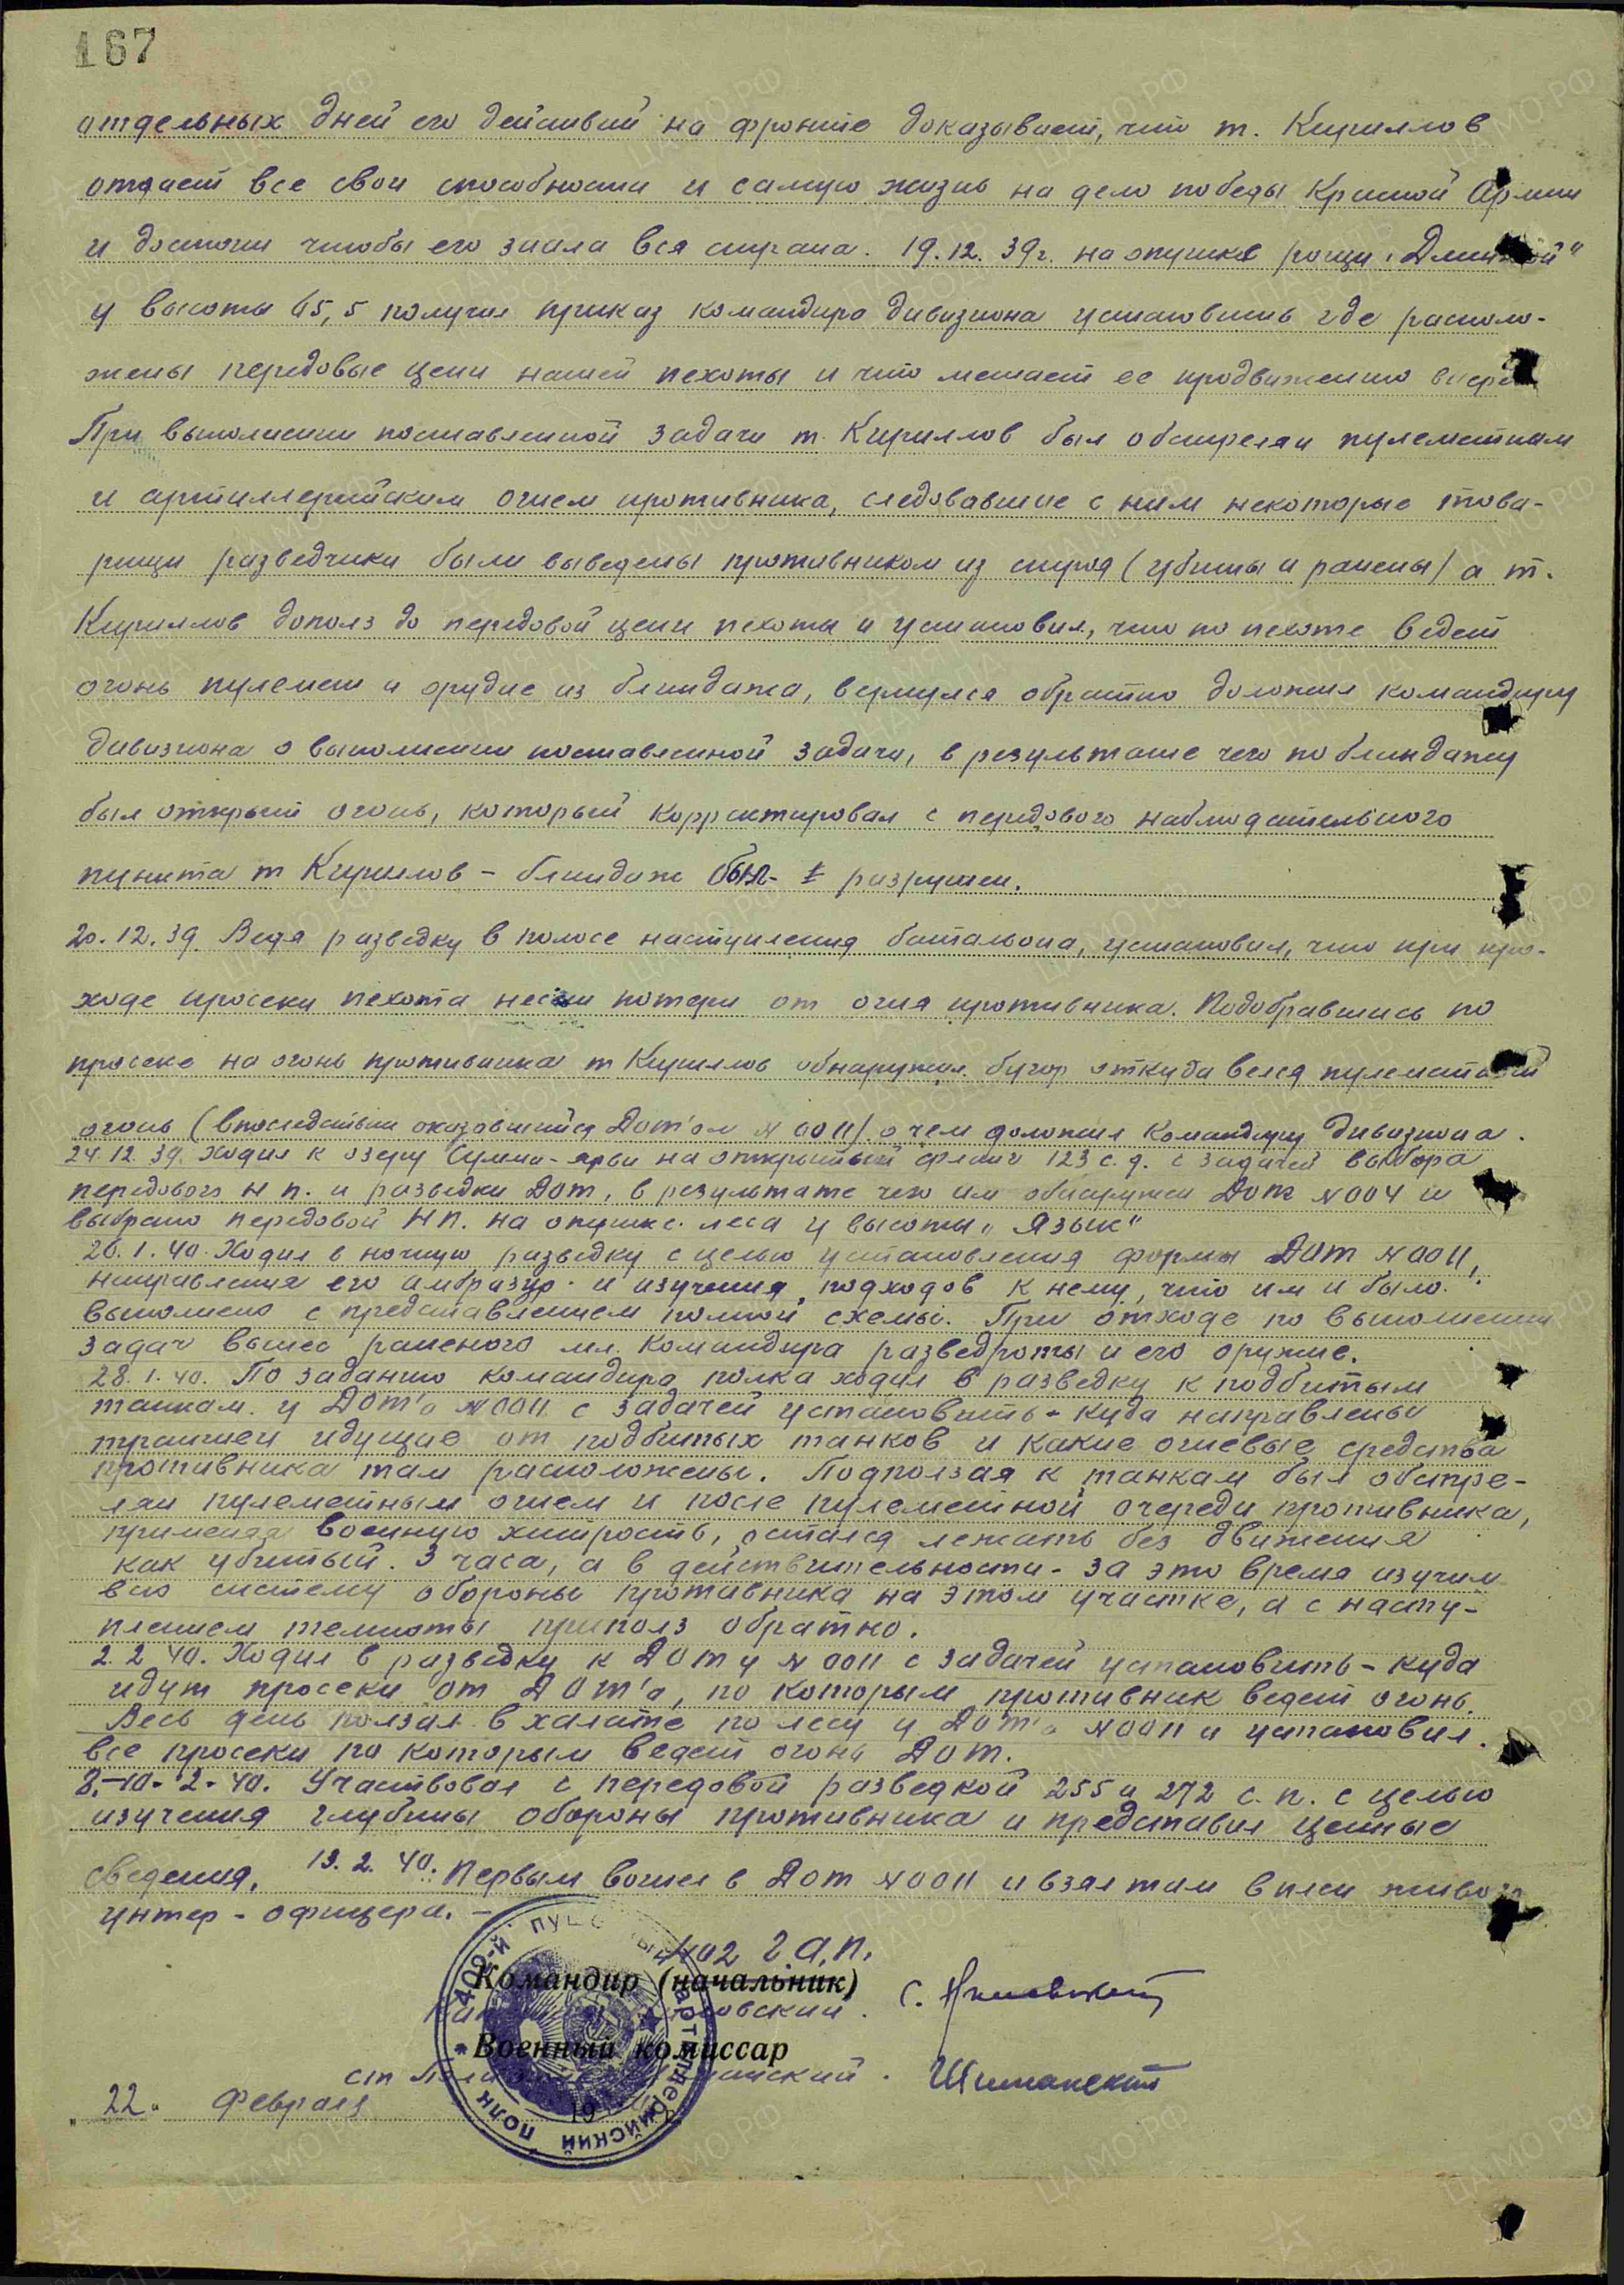 167
отдельных дней его действий на фронте доказывает, что т. Кириллов
отдает все свои способности и самую жизнь на дело победы Красной Армии
и достоин чтобы его знала вся страна. 19.12.39г. на опушке рощи „Длинной"
у высоты 65,5 получил приказ командира дивизиона установить где располо-
жены передовые цепи нашей пехоты и что мешает ее продвижению вперед
При выполнении поставленной задачи т. Кириллов был обстрелян пулеметным
и артиллерийским огнем противника, следовавшие с ним некоторые това-
рищи разведчики были выведены противником из строя (убиты и ранены) а т.
Кириллов дополз до передовой цепи пехоты и установил, что по пехоте ведет
огонь пулемет и орудие из блиндажа, вернулся обратно доложил командиру
дивизиона о выполнении поставленной задачи, в результате чего по блиндажу
был открыт огонь, который корректировал с передового наблюдательного
пункта т Кириллов – блиндаж был разрушен.
20.12.39. Ведя разведку в полосе наступления батальона, установил, что при про-
ходе просеки пехота несет потери от огня противника. Подобравшись по
просеке на огонь противника т Кириллов обнаружил бугор откуда велся пулеметный
огонь (впоследствии оказавшийся Дот'ом №0011) о чем доложил Командиру дивизиона.
24.12.39. Ходил к озеру Сумма-ярви на открытый фланг 123 с.д. с задачей выбора
передового н п. и разведки Дот, в результате чего им обнаружен Дот №004 и
выбрано передовой НП. на опушке леса у высоты „Язык"
26.1.40. Ходил в ночную разведку с целью установления формы Дот №0011,
направления его амбразур и изучения подходов к нему, что им и было
выполнено с представлением полной схемы. При отходе по выполнении
задач вынес раненого мл. Командира разведроты и его оружие.
28.1.40. По заданию командира полка ходил в разведку к подбитым
танкам у Дот'а №0011 с задачей установить - куда направлены
траншеи идущие от подбитых танков и какие огневые средства
противника там расположены. Подползая к танкам был обстре-
лян пулеметным огнем и после пулеметной очереди противника,
применяя военную хитрость, остался лежать без движения
как убитый. 3 часа, а в действительности - за это время изучил
всю систему обороны противника на этом участке, а с насту-
плением темноты приполз обратно.
2.2 40. Ходил в разведку к Доту №0011 с задачей установить – куда
идут просеки от Дот'а, по которым противник ведет огонь.
Весь день ползал в халате по лесу у Дот'а №0011 и установил
все просеки по которым ведет огонь Дот.
8.-10.2.40. Участвовал с передовой разведкой 255 и 272 с.п. с целью
изучения глубины обороны противника и представил ценные
сведения. 13.2.40. Первым вошел в Дот №0011 и взял там в плен живого
унтер-офицера. –
402 г.а.п.
Командир (начальник)
Военный комиссар
Шиманский
„22" февраля 19
402-й пушечный артиллерийский полк